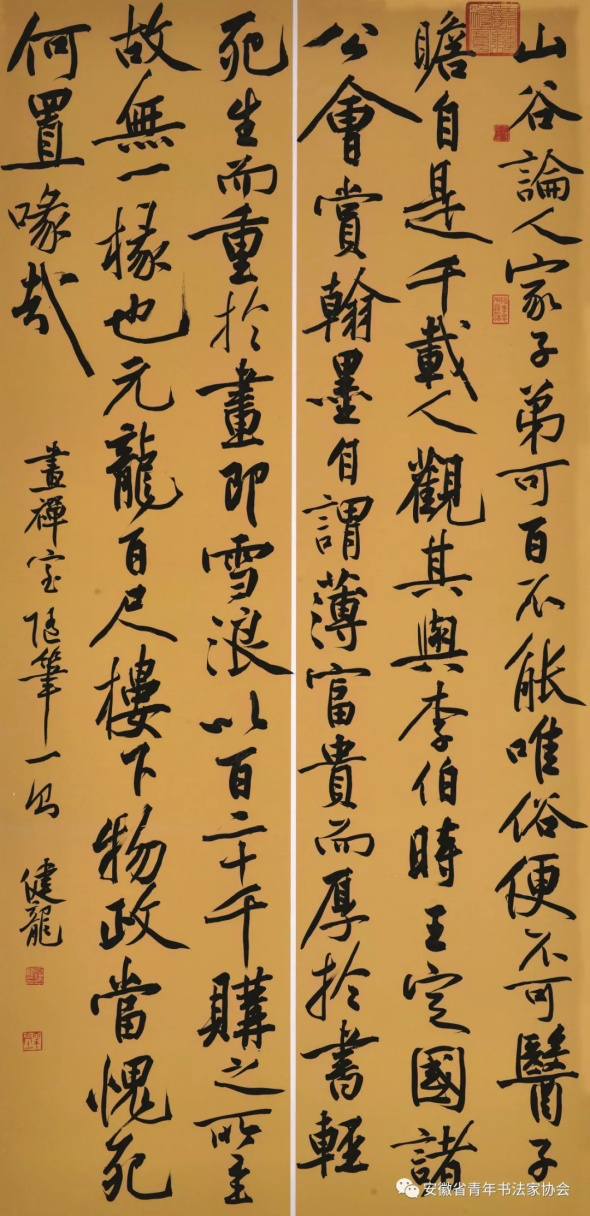 山谷論人家子弟可百不能唯俗便不可醫子
瞻自是千載人觀其與李伯時王定國諸
公會賞翰墨自謂薄富貴而厚於書輕
死生而重於畫即雪浪以百二十千購之所至
故無一椽也元龍百尺樓下物政當愧死
何置喙哉
畫禪室隨筆一則 健龍
安徽省青年书法家协会